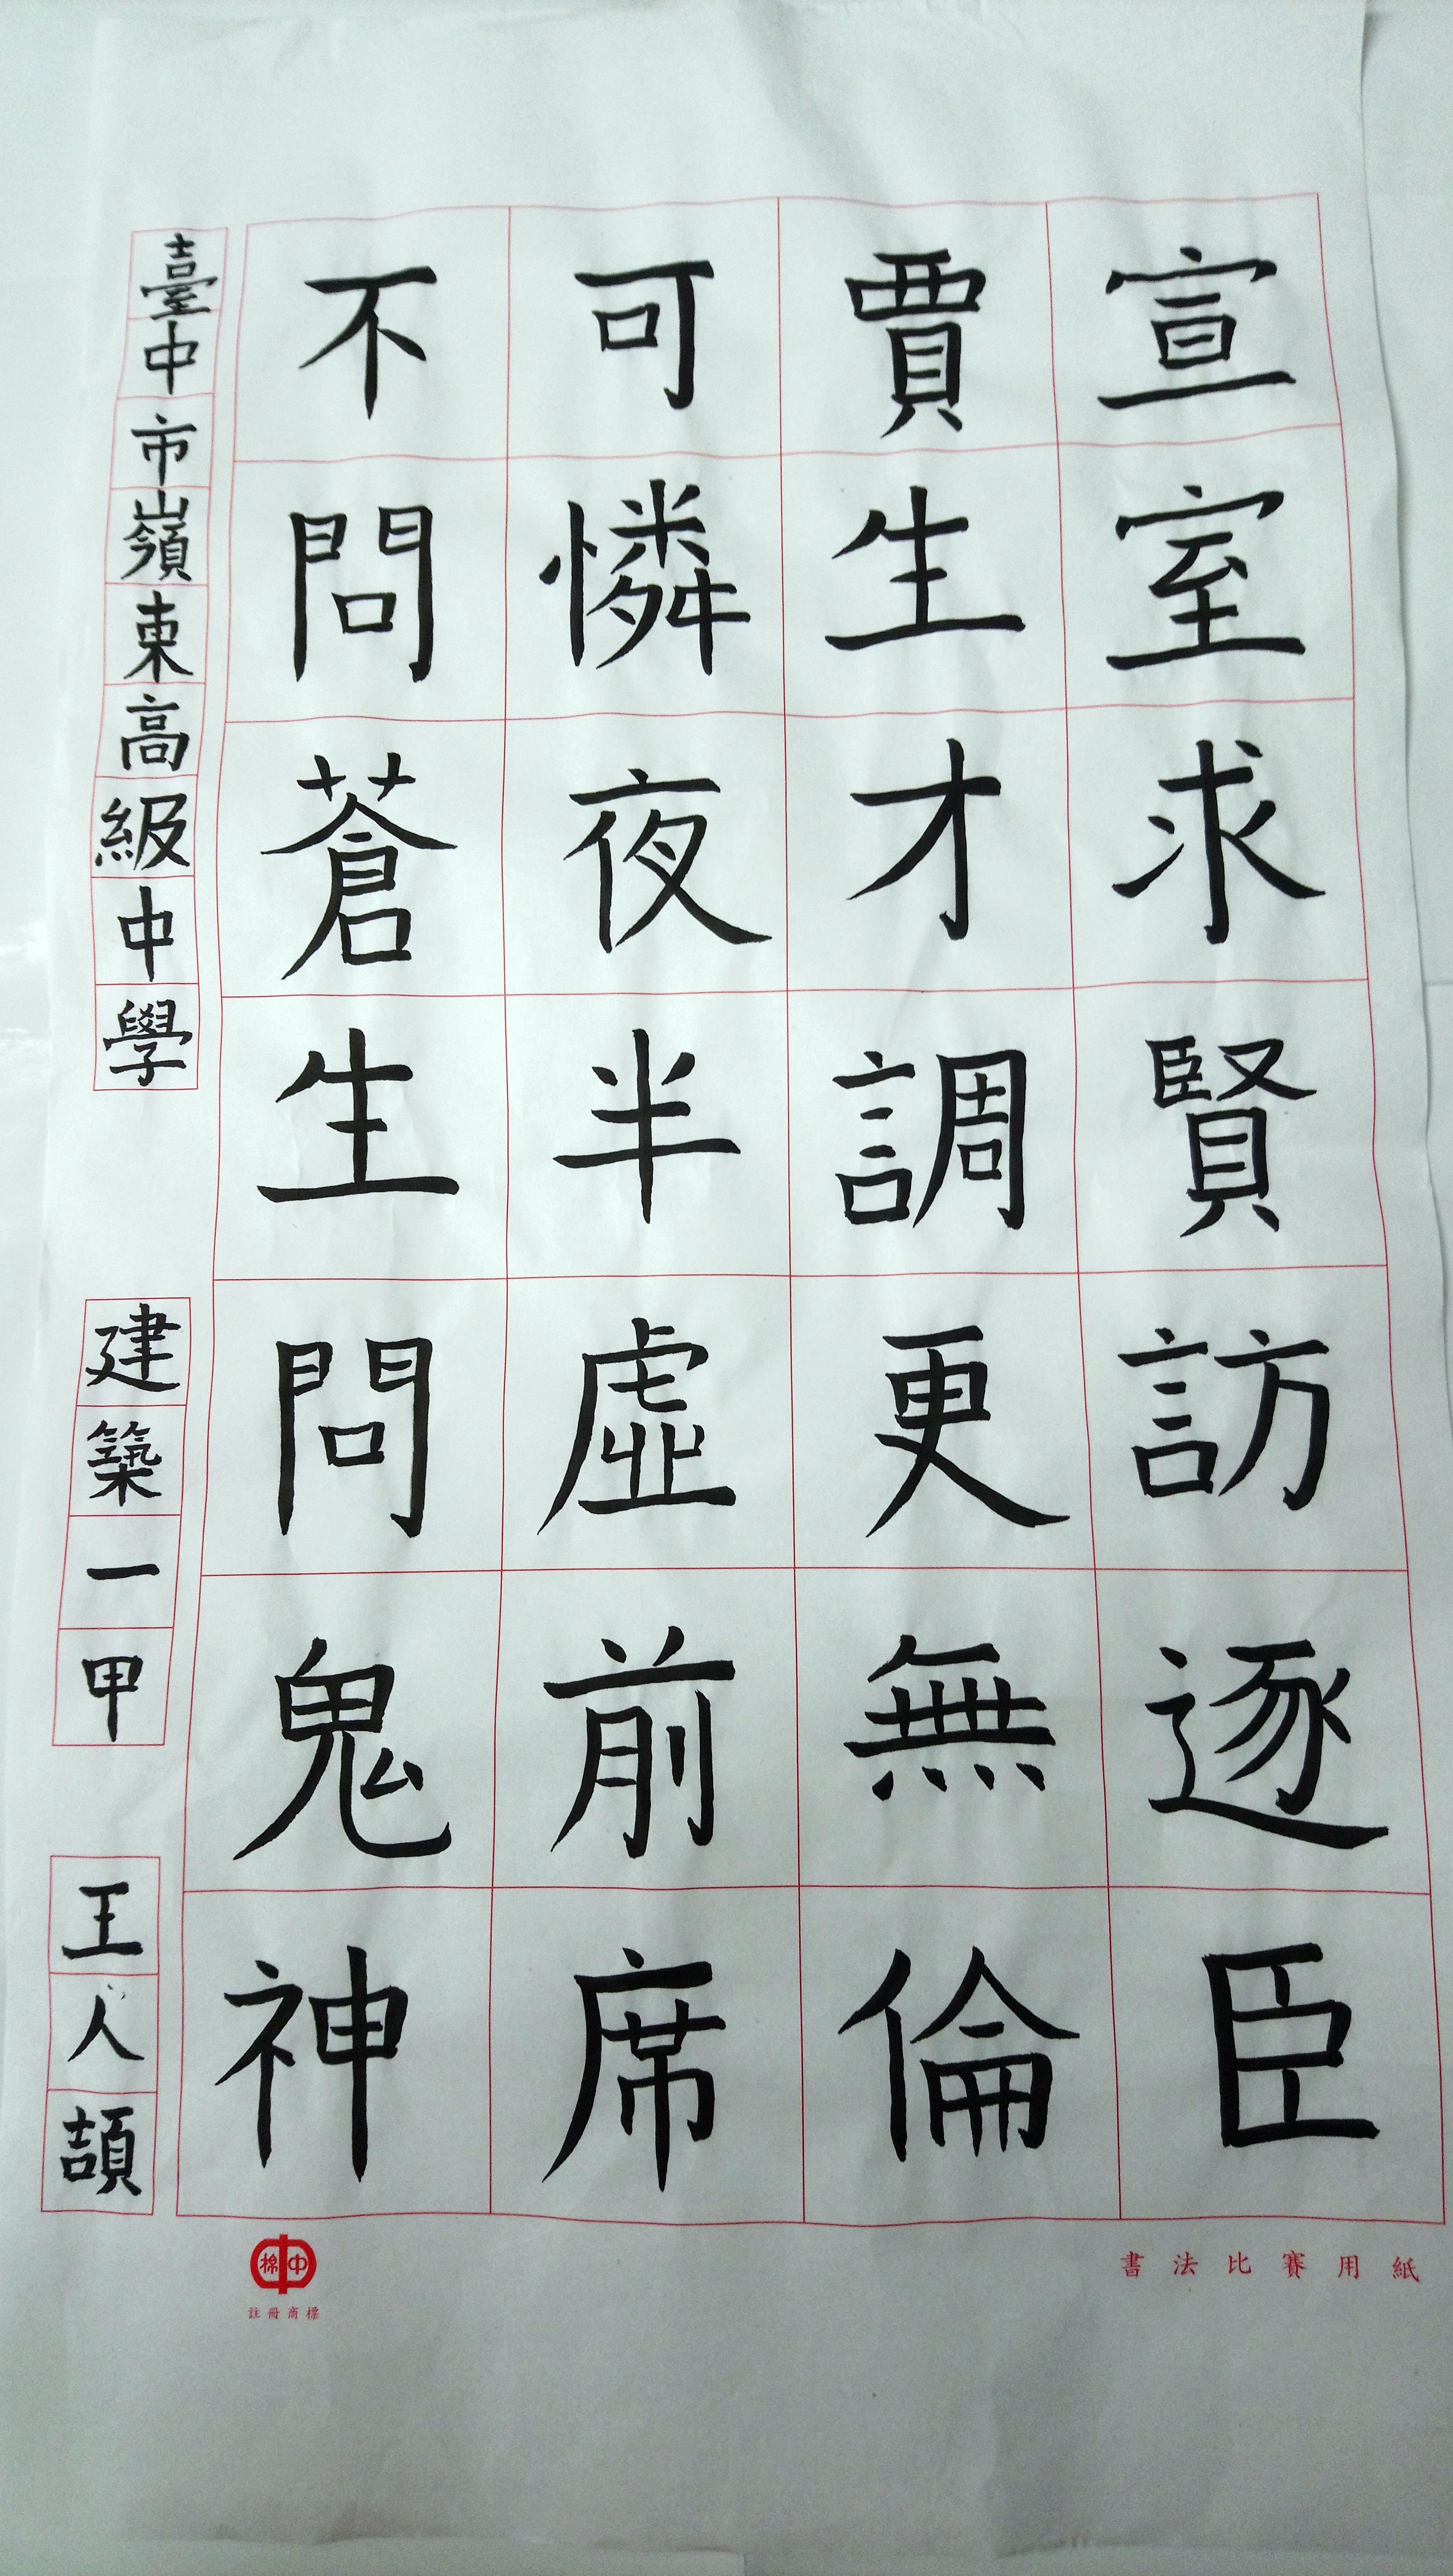 宣室求賢訪逐臣
賈生才調更無倫
可憐夜半虛前席
不問蒼生問鬼神
臺中市嶺東高級中學
建築一甲
王人頡
棉中
註冊商標
書法比賽用紙